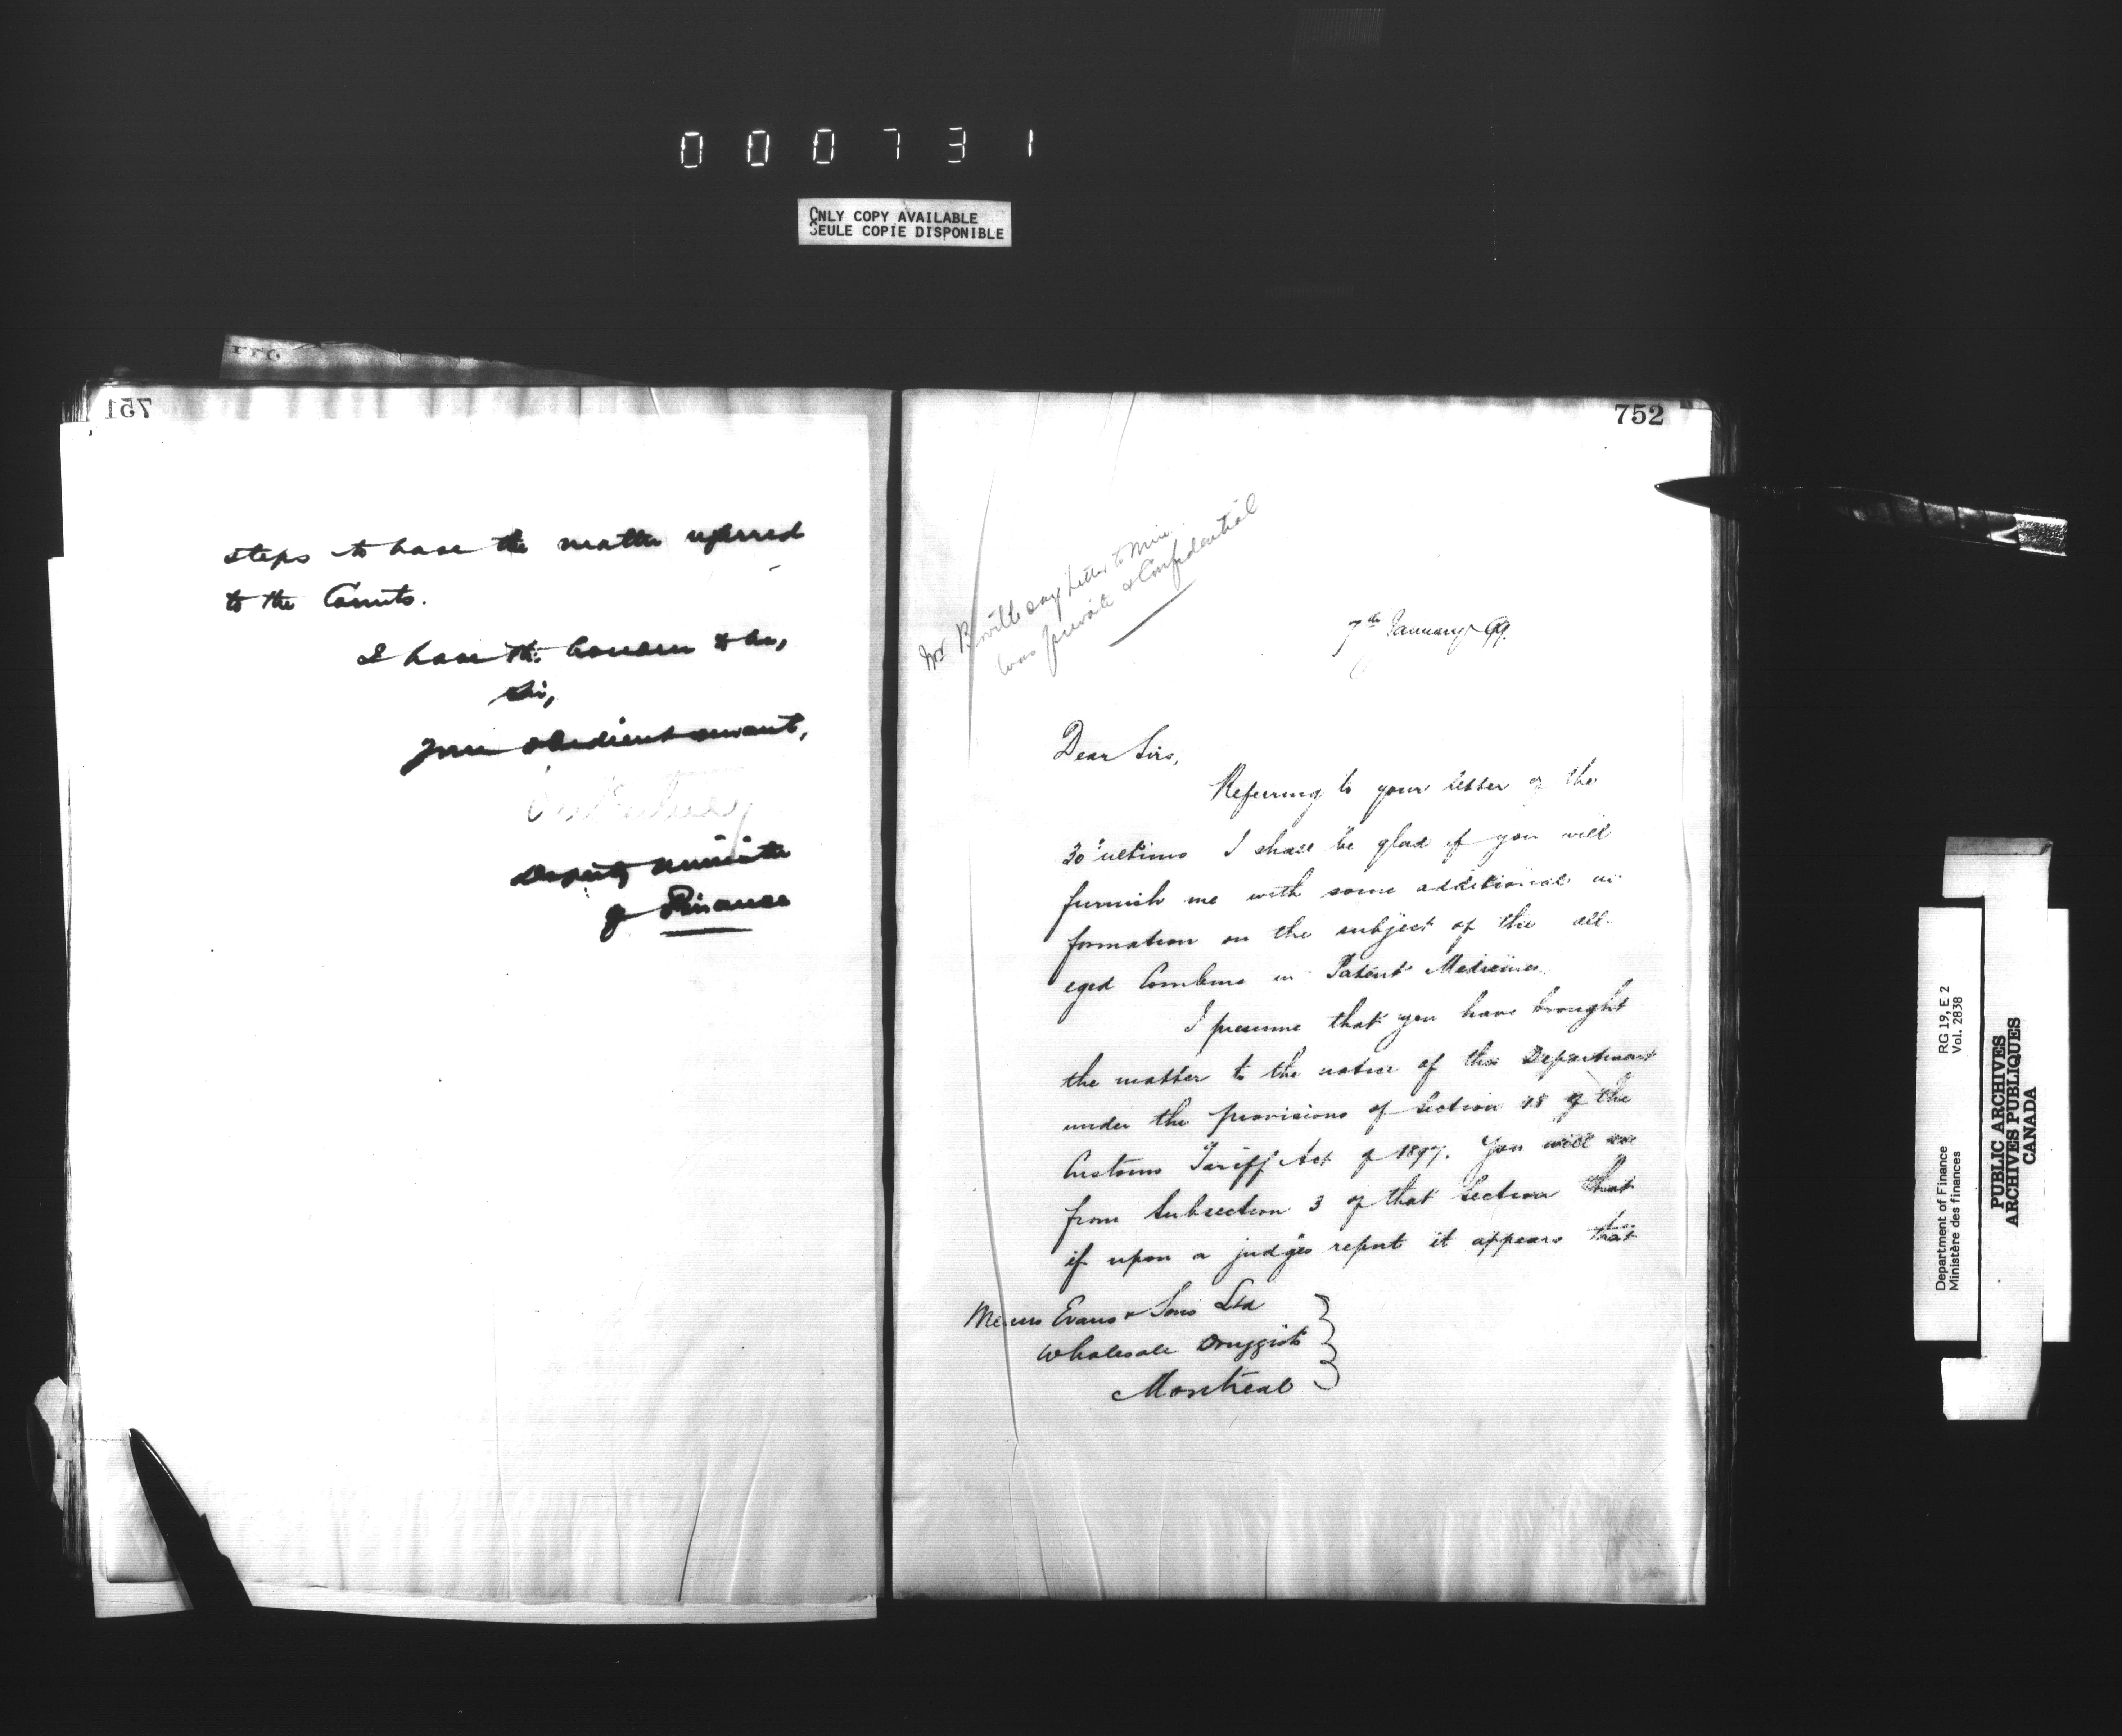 000731
ONLY COPY AVAILABLE
SEULE COPIE DISPONIBLE
751
steps to have the matter referred
to the Courts.
I have the honour to be,
Sir,
Your obedient servant,
Deputy Minister
of Finance
752
Mr Boville says letter to Min.
was private & Confidential
7th January 99.
Dear Sirs,
Referring to your letter of the
30th ultimo I shall be glad if you will
furnish me with some additional in-
formation on the subject of the all-
eged Combine in Patent Medicines.
I presume that you have brought
the matter to the notice of this Department
under the provisions of Section 18 of the
Customs Tariff Act of 1897. You will see
from Subsection 3 of that Section that
if upon a judges report it appears that
Messrs Evans & Sons Ltd
Wholesale Druggists
Montreal
Department of Finance
Ministère des finances
RG 19, E 2
Vol. 2838
PUBLIC ARCHIVES
ARCHIVES PUBLIQUES
CANADA